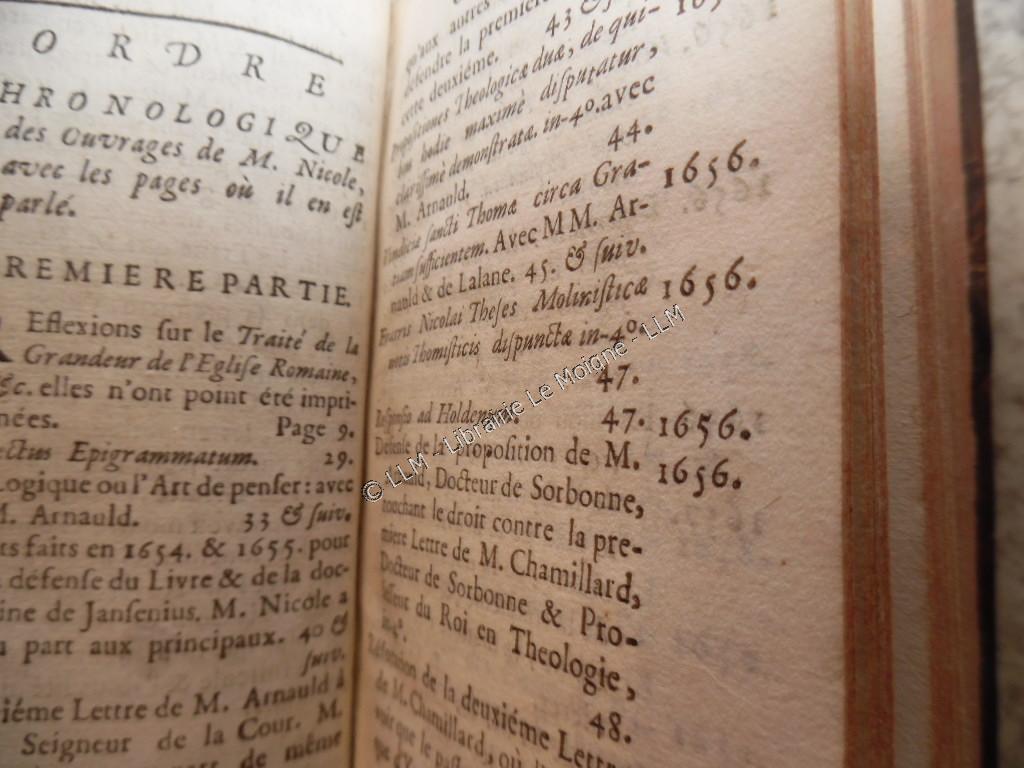 ORDRE
HRONOLOGIQUE
des Ouvrages de M. Nicole,
avec les pages où il en eſt
parlé.
REMIERE PARTIE.
Eflexions ſur le Traité de la
Grandeur de l'Egliſe Romaine,
&c. elles n'ont point été impri-
mées. Page 9.
ectus Epigrammatum. 29.
Logique ou l'Art de penſer: avec
M. Arnauld. 33 & ſuiv.
ts faits en 1654. & 1655. pour
défenſe du Livre & de la doc-
ine de Janſenius. M. Nicole a
part aux principaux. 40 &
ſuiv.
iéme Lettre de M. Arnauld à
Seigneur de la Cour. M.
de même
qu'aux autres
défendre la premiere 43 &
cette deuxiéme.
Propoſitiones Theologicæ duæ, de qui-
bus hodie maximè diſputatur,
clariſſimè demonſtratæ. in-4°. avec
M. Arnauld. 44.
Vindiciæ ſancti Thomæ circa Gra- 1656.
tiam ſufficientem. Avec MM. Ar-
nauld & de Lalane. 45. & ſuiv.
Fratris Nicolai Theſes Moliniſticæ 1656.
notis Thomiſticis diſpunctæ in-4°.
47.
Reſponſio ad Holdenum. 47. 1656.
Défenſe de la propoſition de M. 1656.
Docteur de Sorbonne,
touchant le droit contre la pre-
miere Lettre de M. Chamillard,
Docteur de Sorbonne & Pro-
feſſeur du Roi en Theologie,
in-4°. 48.
Réfutation de la deuxiéme Lettre
de M. Chamillard, où
voir que le
que
© LLM - Librairie Le Moigne - LLM